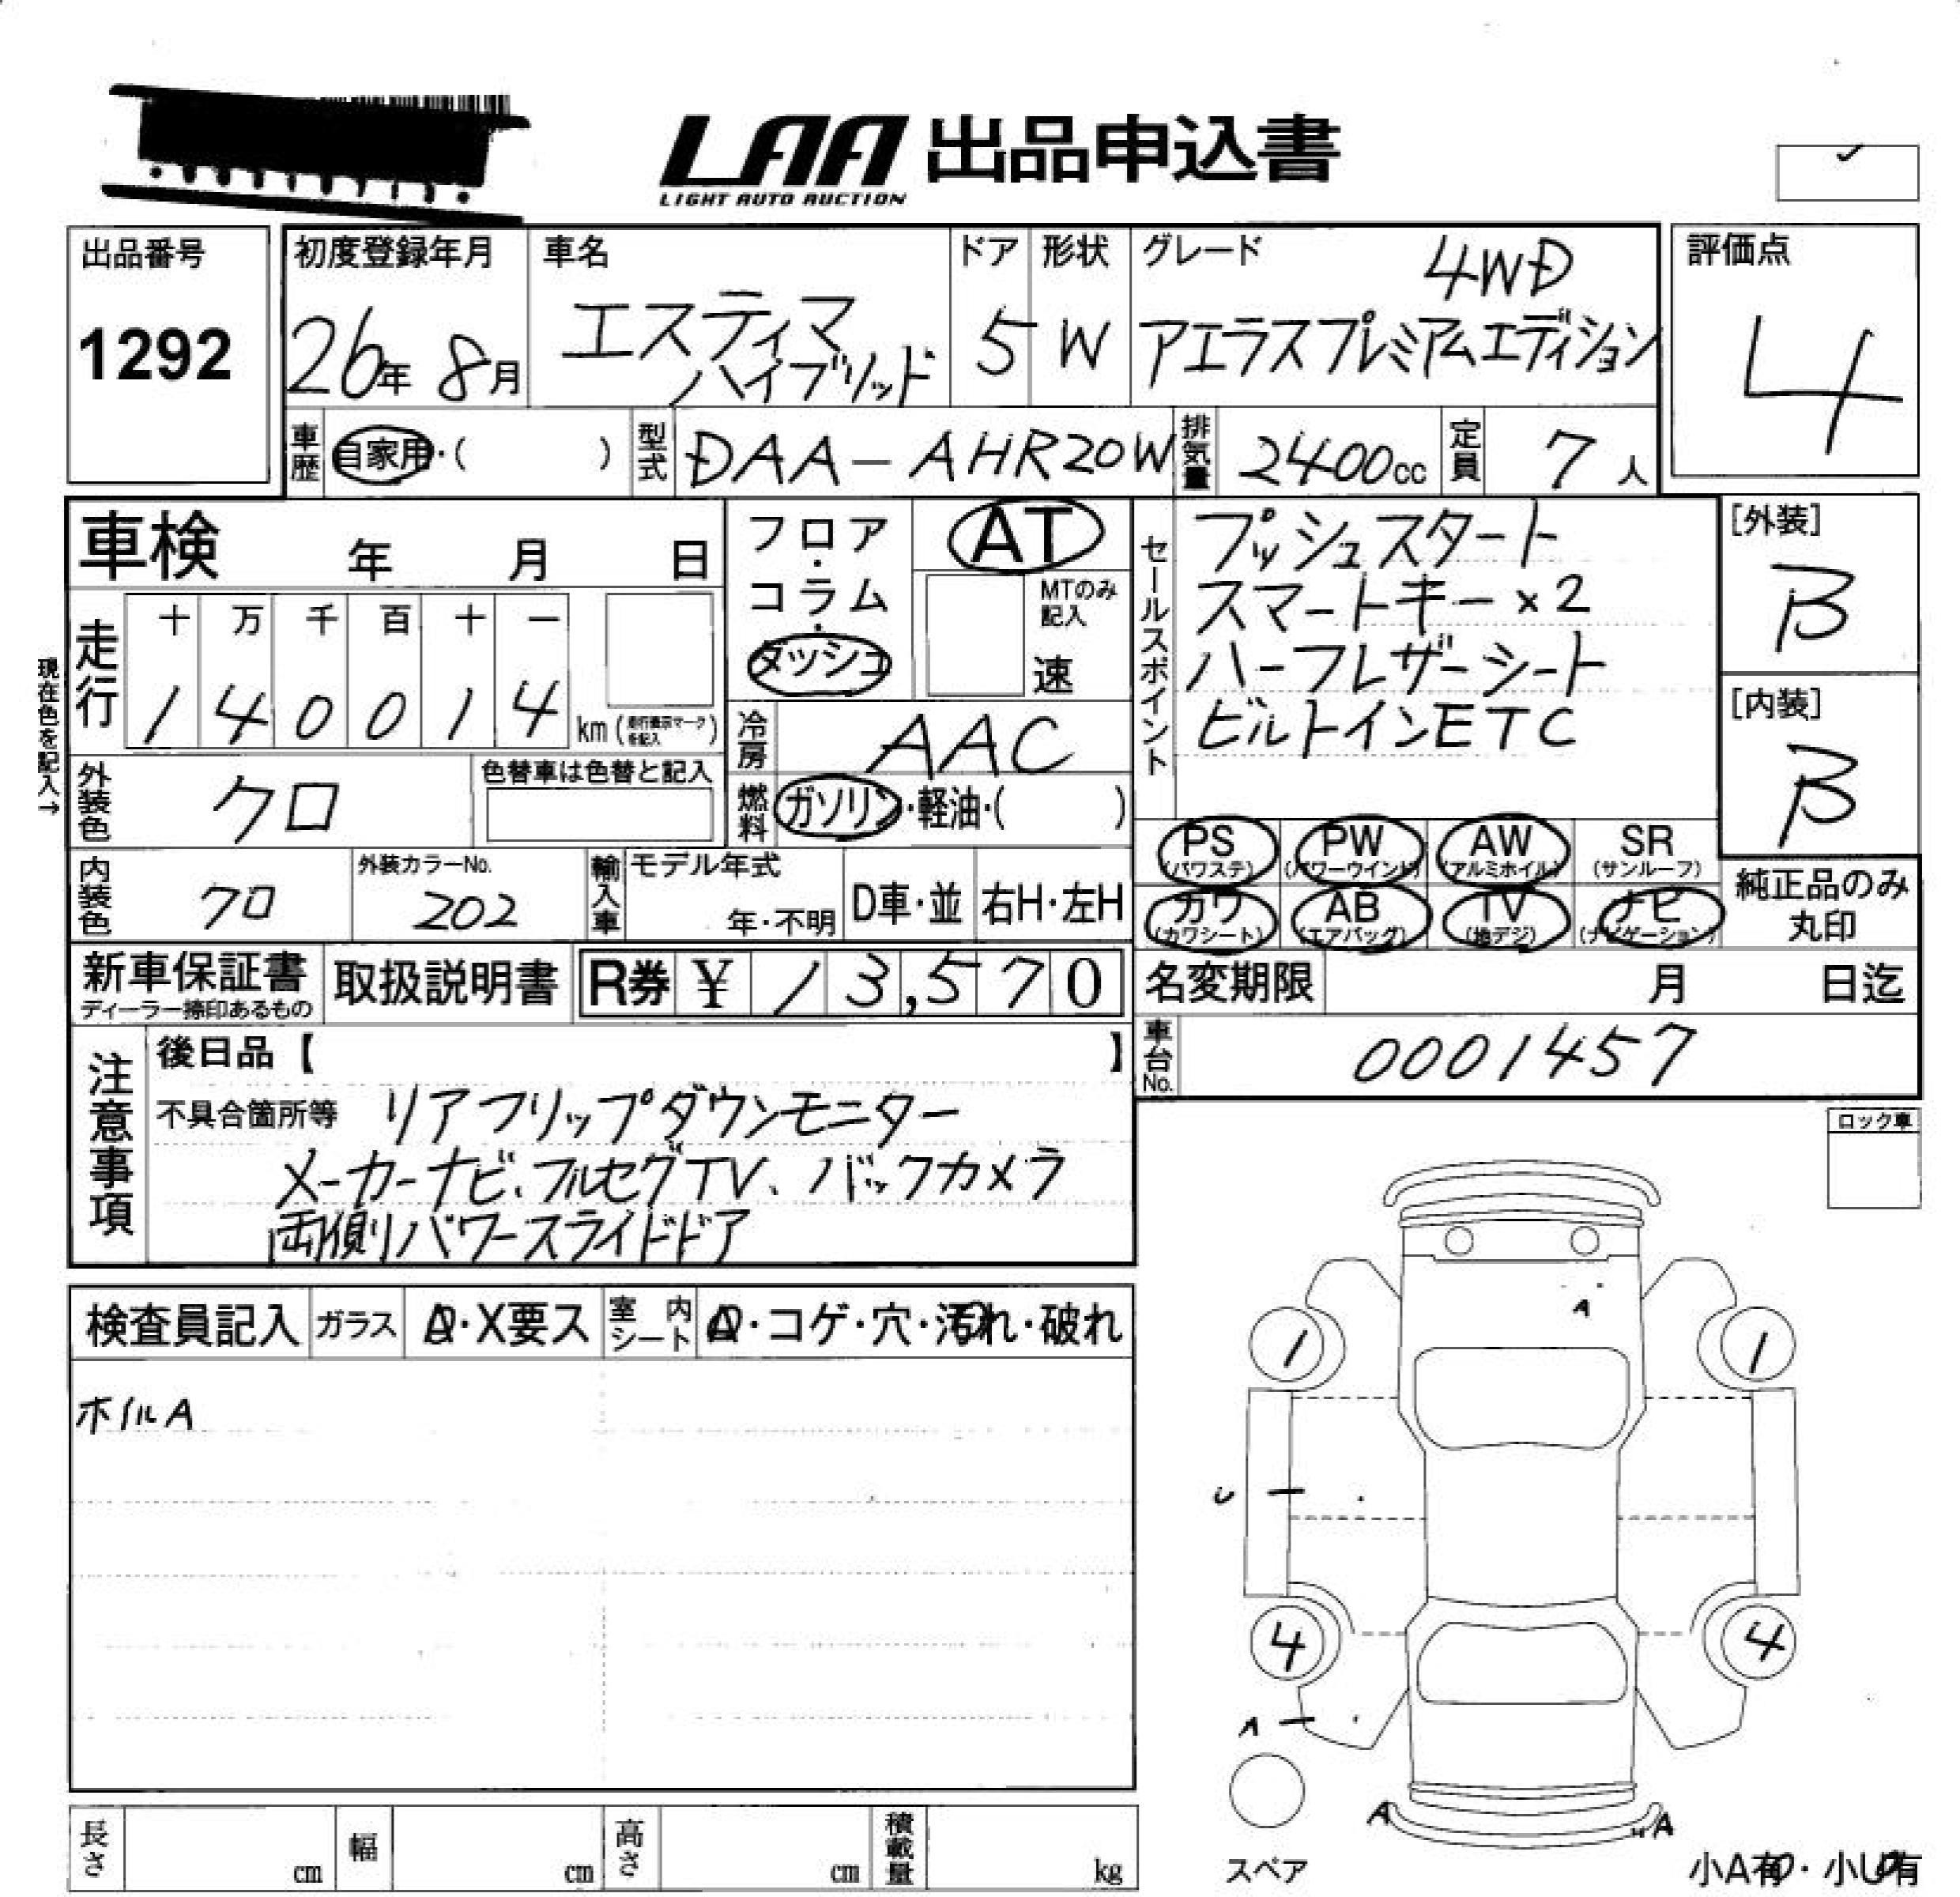 LAA 出品申込書
LIGHT AUTO AUCTION
出品番号
1292
初度登録年月
26年 8月
車名
エスティマ
ハイブリッド
ドア
5
形状
W
グレード
4WD
アエラスプレミアムエディション
評価点
4
車歴 自家用・( )
型式 DAA-AHR20W
排気量 2400cc
定員 7人
車検 年 月 日
フロア・
コラム・
ダッシュ
AT
MTのみ
記入
速
セールスポイント
プッシュスタート
スマートキー×2
ハーフレザーシート
ビルトインETC
[外装]
B
[内装]
B
現在色を記入→
走行
十 万 千 百 十 一
1 4 0 0 1 4 km (走行表示マークを記入)
冷房 AAC
外装色 クロ
色替車は色替と記入
燃料 ガソリン・軽油・( )
PS (パワステ) PW (パワーウインド) AW (アルミホイル) SR (サンルーフ)
カワ (カワシート) AB (エアバッグ) TV (地デジ) ナビ (ナビゲーション)
純正品のみ
丸印
内装色 クロ
外装カラーNo.
202
輸入車
モデル年式
年・不明
D車・並
右H・左H
新車保証書
ディーラー捺印あるもの
取扱説明書
R券 ¥ 13,570
名変期限 月 日迄
車台No. 0001457
注意事項
後日品【 】
不具合箇所等 リアフリップダウンモニター
メーカーナビ、フルセグTV、バックカメラ
両側パワースライドドア
ロック車
検査員記入 ガラス A・X要ス 室内シート A・コゲ・穴・汚れ・破れ
ホイルA
A
1 1
U
4 4
A
A A
スペア
小A有・小U有
長さ cm 幅 cm 高さ cm 積載量 kg